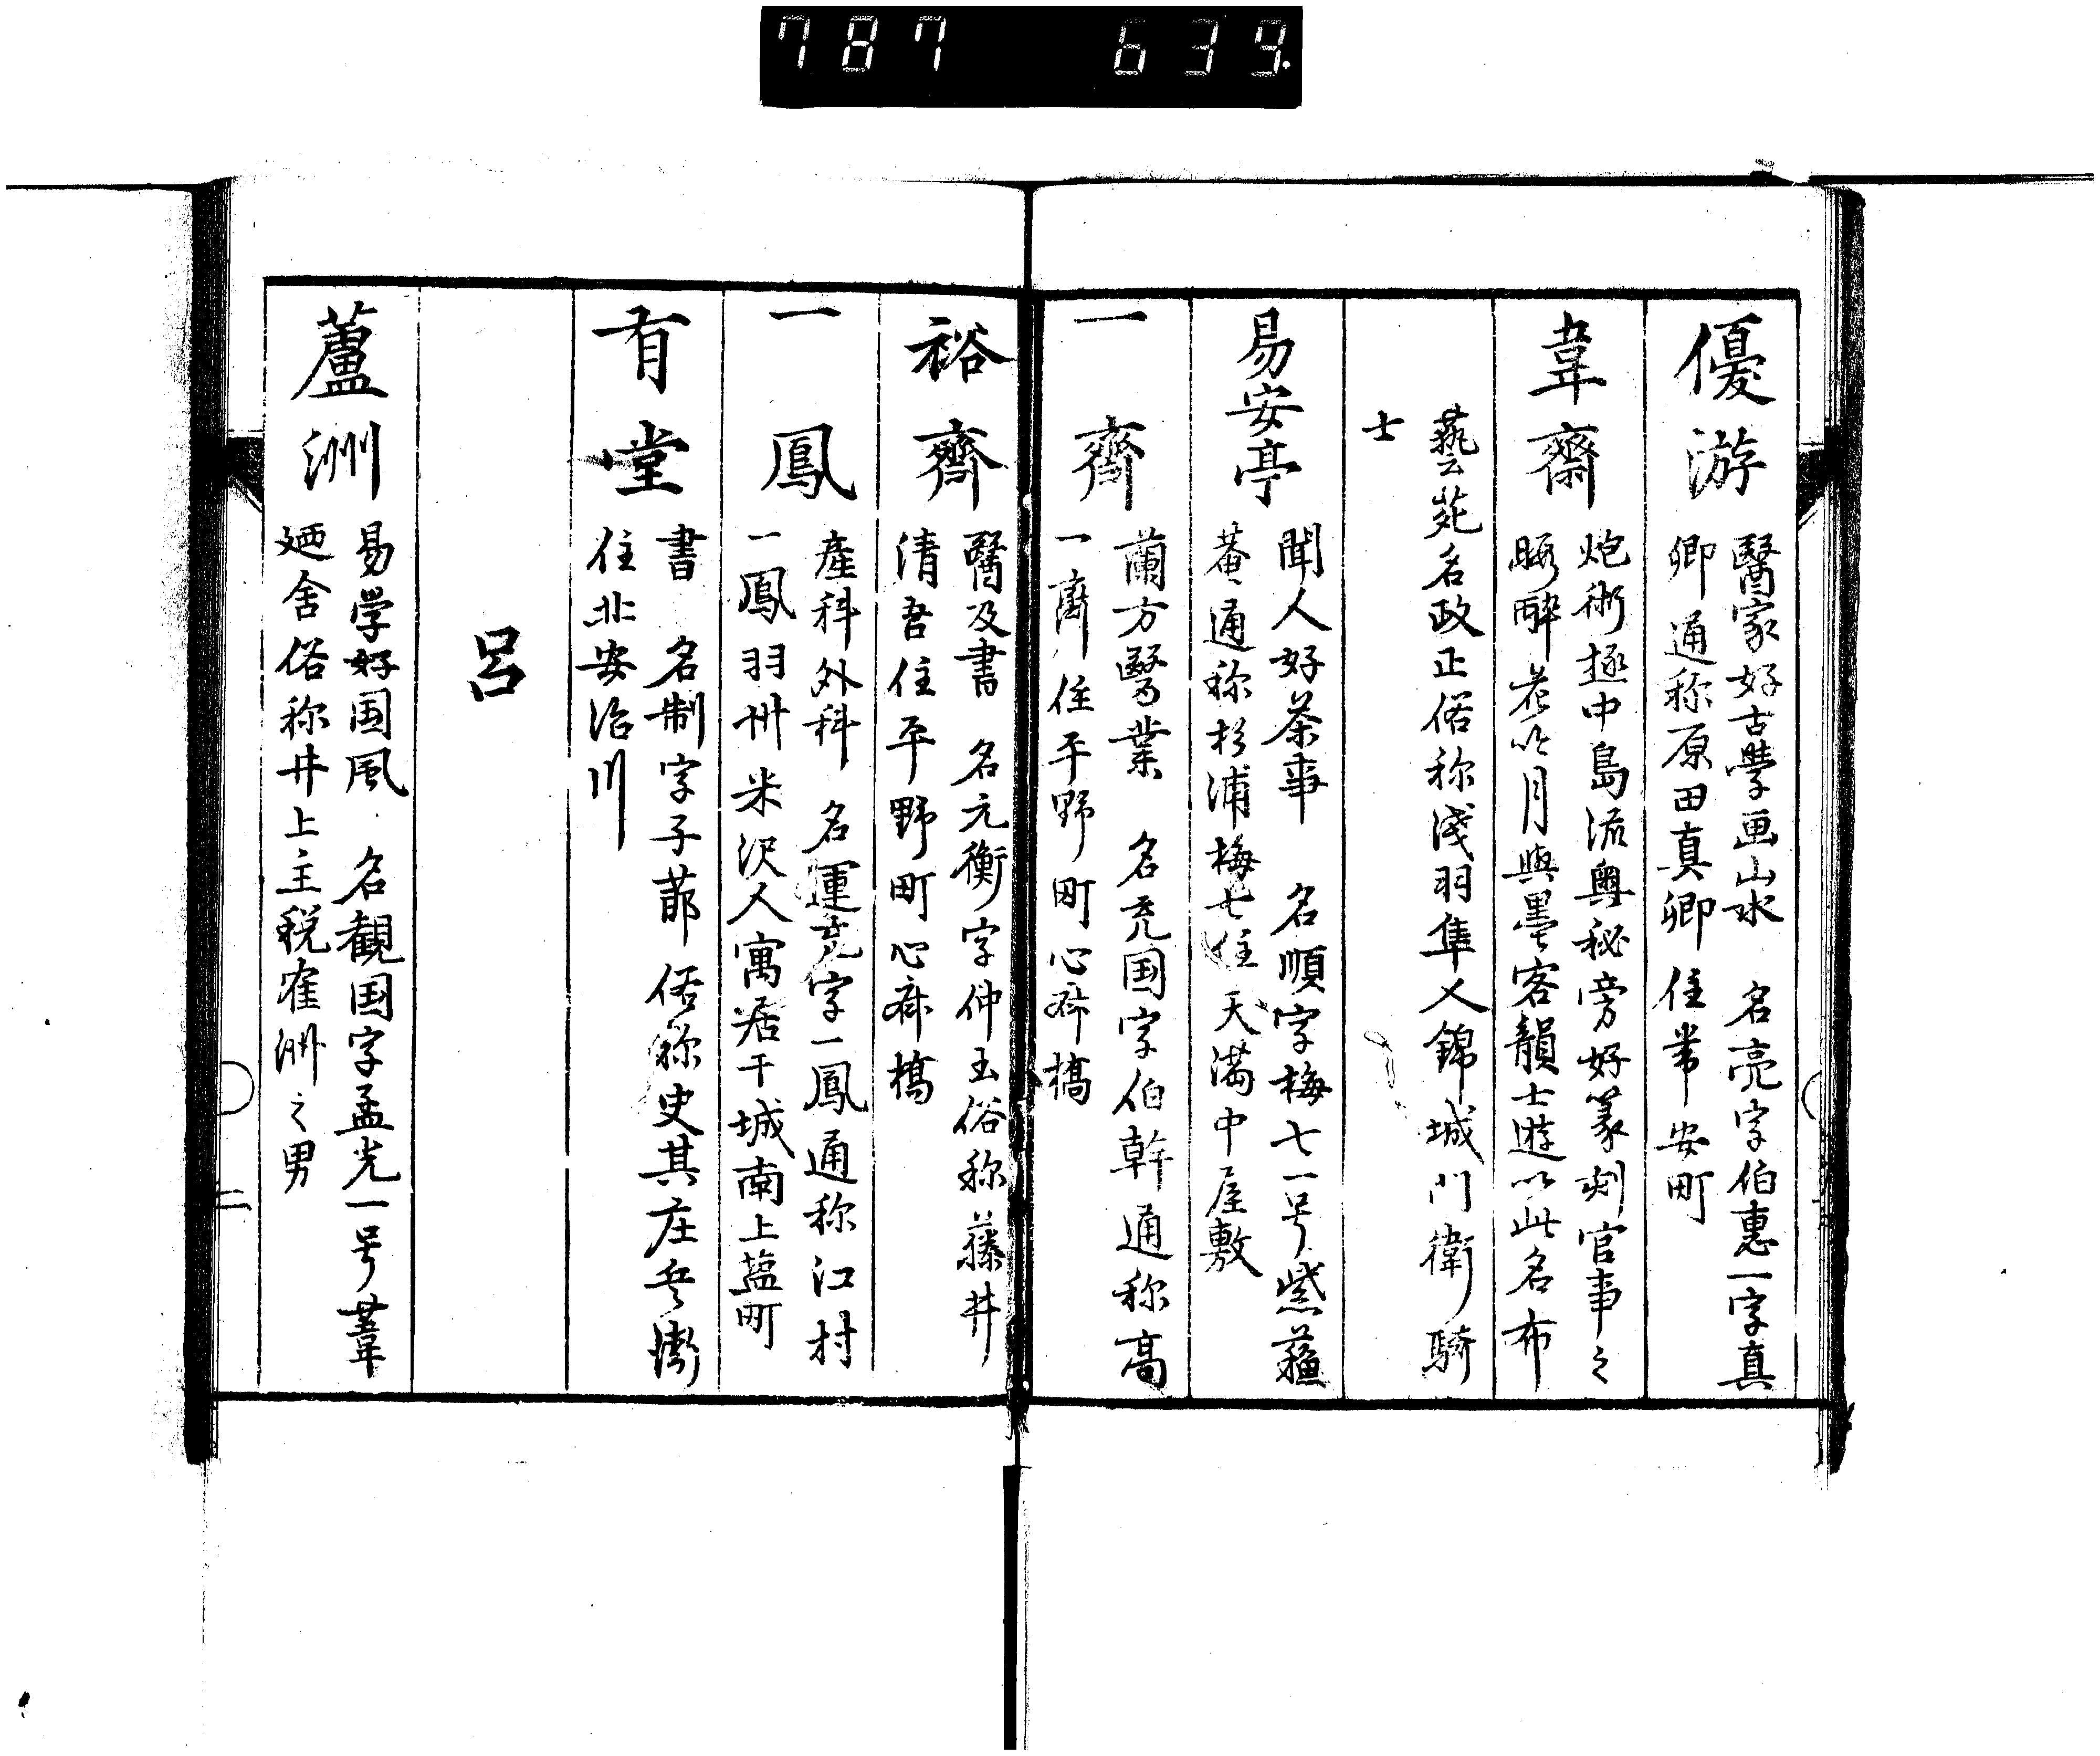 787 639.
優游
醫家好古學画山水 名亮字伯惠一字真
卿通称原田真卿住常安町
韋齋
炮術極中島流奥秘旁好篆刻官事之
暇酔花吟月與墨客韻士遊以此名布
藝苑名政正俗称淺羽隼人錦城門衛騎
士
易安亭
聞人好茶事 名順字梅七一号紫蘓
菴通称杉浦梅七住天満中屋敷
一齊
蘭方醫業 名充国字伯幹通称高
一齊住平野町心斎橋
裕齊
醫及書 名元衡字仲玉俗称藤井
清吾住平野町心斎橋
一鳳
産科外科 名運充字一鳳通称江村
一鳳羽州米沢人寓居干城南上塩町
有堂
書 名制字子節俗称史其庄兵衛
住北安治川
呂
蘆洲
易学好国風 名観国字孟光一号葦
廼舎俗称井上主税寉洲之男
二